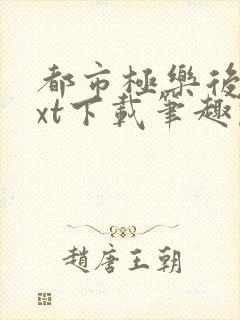 都市極樂後
xt下載筆趣
趙唐王朝